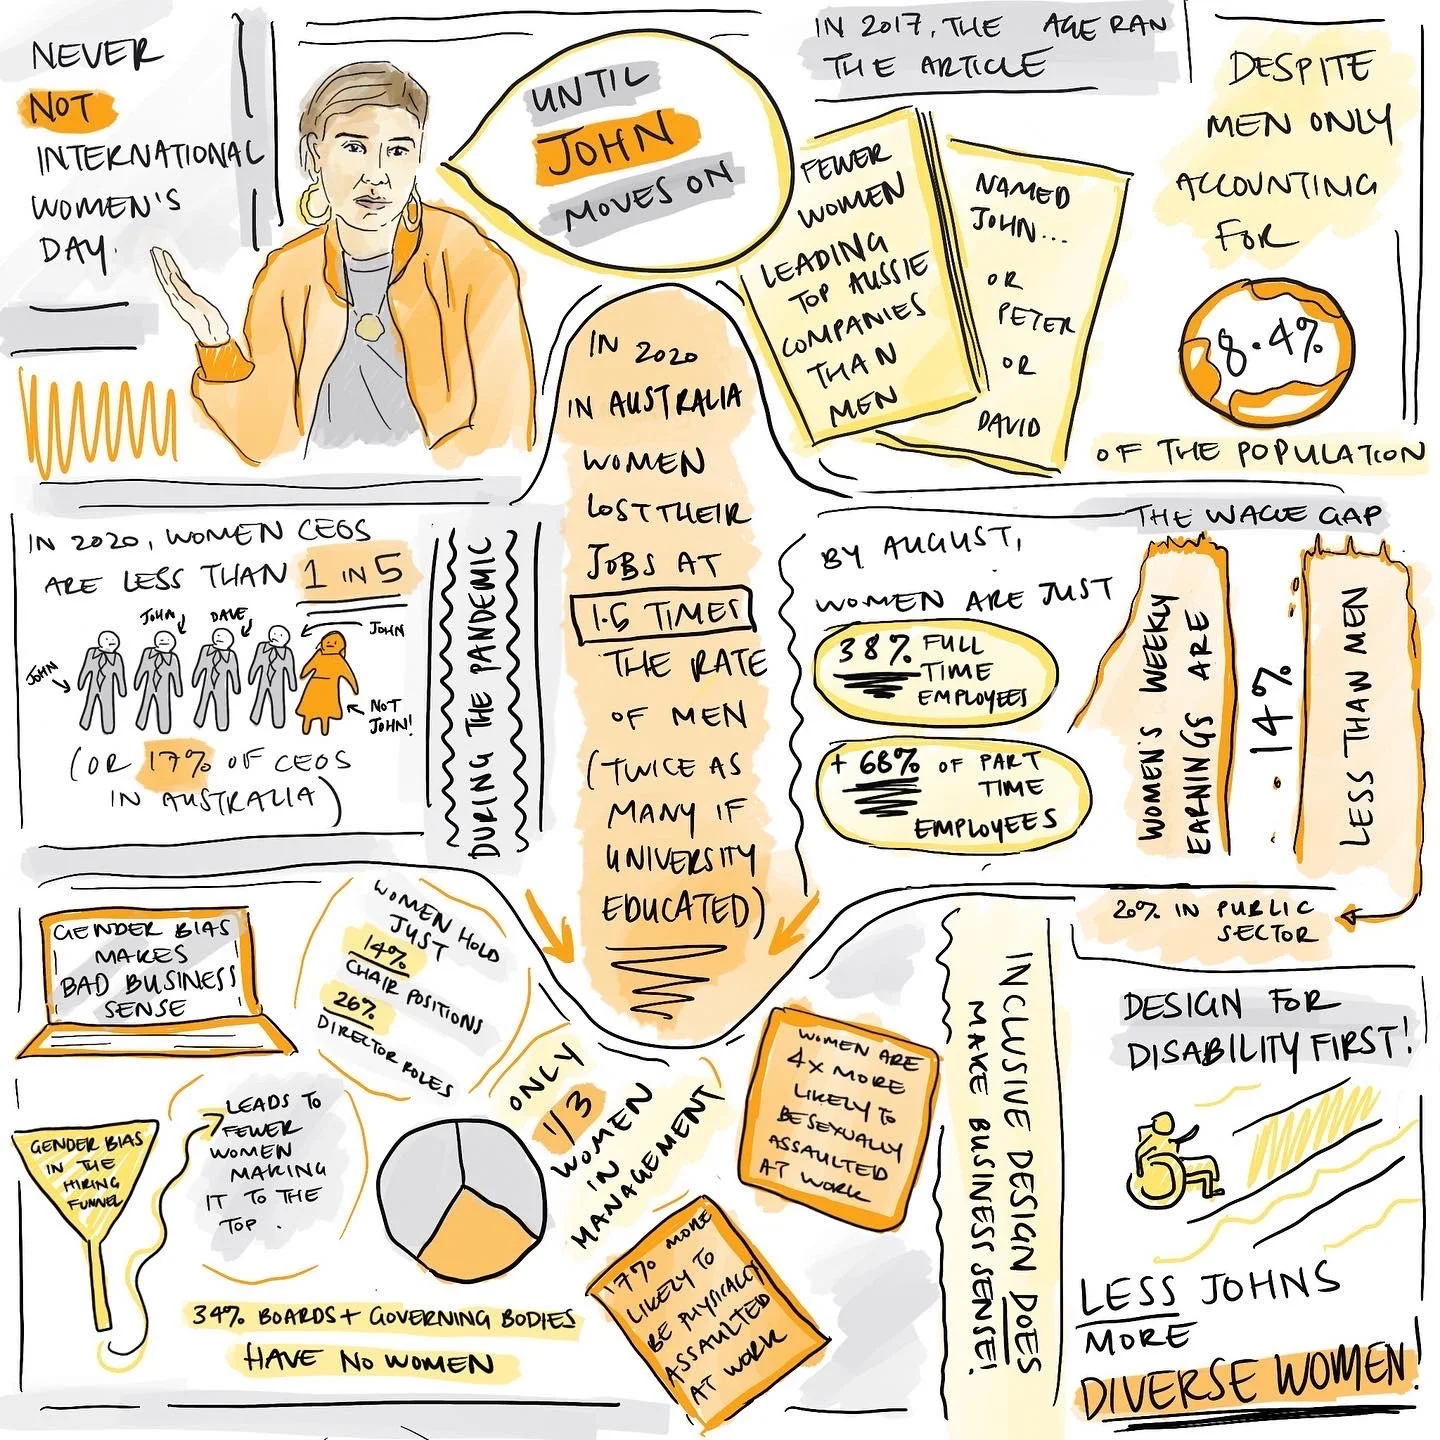 NEVER
NOT
INTERNATIONAL
WOMEN'S
DAY.
UNTIL
JOHN
MOVES ON
IN 2017, THE AGE RAN
THE ARTICLE
FEWER
WOMEN
LEADING
TOP AUSSIE
COMPANIES
THAN
MEN
NAMED
JOHN...
OR
PETER
OR
DAVID
DESPITE
MEN ONLY
ACCOUNTING
FOR
8.4%
OF THE POPULATION
IN 2020, WOMEN CEOS
ARE LESS THAN 1 IN 5
JOHN
JOHN
DAVE
JOHN
NOT
JOHN!
(OR 17% OF CEOS
IN AUSTRALIA)
DURING THE PANDEMIC
IN 2020
IN AUSTRALIA
WOMEN
LOST THEIR
JOBS AT
1.5 TIMES
THE RATE
OF MEN
(TWICE AS
MANY IF
UNIVERSITY
EDUCATED)
BY AUGUST,
WOMEN ARE JUST
38% FULL
TIME
EMPLOYEES
+ 68% OF PART
TIME
EMPLOYEES
THE WAGE GAP
WOMEN'S WEEKLY
EARNINGS ARE
14%
LESS THAN MEN
20% IN PUBLIC
SECTOR
GENDER BIAS
MAKES
BAD BUSINESS
SENSE
WOMEN HOLD
JUST
14%
CHAIR POSITIONS
26%
DIRECTOR ROLES
GENDER BIAS
IN THE
HIRING
FUNNEL
LEADS TO
FEWER
WOMEN
MAKING
IT TO THE
TOP.
ONLY
1/3
WOMEN
IN
MANAGEMENT
34% BOARDS + GOVERNING BODIES
HAVE NO WOMEN
WOMEN ARE
4X MORE
LIKELY TO
BE SEXUALLY
ASSAULTED
AT WORK
17% MORE
LIKELY TO
BE PHYSICALLY
ASSAULTED
AT WORK
INCLUSIVE DESIGN DOES
MAKE BUSINESS SENSE!
DESIGN FOR
DISABILITY FIRST!
LESS JOHNS
MORE
DIVERSE WOMEN!